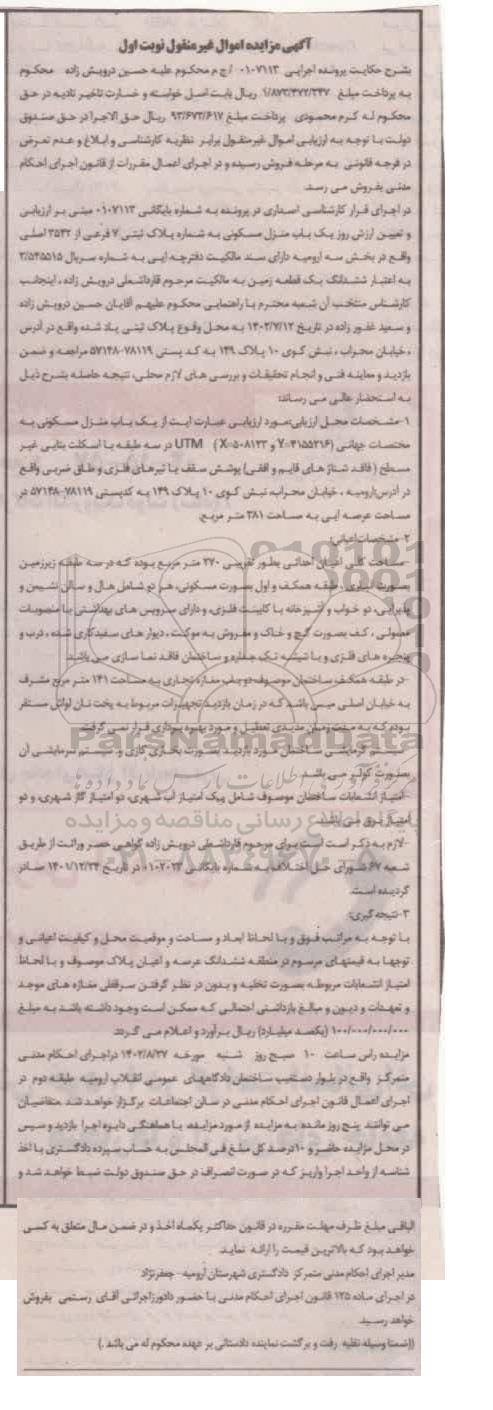 آگهی مزایده اموال غیر منقول نوبت اول
بشرح حکایت پرونده اجرایی ۰۱۰۷۱۱۳ / ج م محکوم علیه حسین درویش زاده محکوم
به پرداخت مبلغ ۱/۸۷۳/۴۷۲/۳۴۷ ریال بابت اصل خواسته و خسارت تاخیر تادیه در حق
محکوم له کرم محمودی پرداخت مبلغ ۹۳/۶۷۳/۶۱۷ ریال حق الاجرا در حق صندوق
دولت با توجه به ارزیابی اموال غیرمنقول برابر نظریه کارشناسی و ابلاغ و عدم تعرض
در فرجه قانونی به مرحله فروش رسیده و در اجرای اعمال مقررات از قانون اجرای احکام
مدنی بفروش می رسد.
در اجرای قرار کارشناسی اصداری در پرونده به شماره بایگانی ۰۱۰۷۱۱۳ مبنی بر ارزیابی
و تعیین ارزش روز یک باب منزل مسکونی به شماره پلاک ثبتی ۷ فرعی از ۳۵۴۲ اصلی
واقع در بخش سه ارومیه دارای سند مالکیت دفترچه ایی به شماره سریال ۳/۵۴۵۵۱۵
به اعتبار ششدانگ یک قطعه زمین به مالکیت مرحوم قارداشعلی درویش زاده ، اینجانب
کارشناس منتخب آن شعبه محترم با راهنمایی محکوم علیهم آقایان حسین درویش زاده
و سعید غفور زاده در تاریخ ۱۴۰۲/۷/۱۲ به محل وقوع پلاک ثبتی یاد شده واقع در آدرس
، خیابان محراب ، نبش کوی ۱۰ پلاک ۱۴۹ به کد پستی ۷۸۱۱۹-۵۷۱۴۸ مراجعه و ضمن
بازدید و معاینه فنی و انجام تحقیقات و بررسی های لازم محلی، نتیجه حاصله بشرح ذیل
به استحضار عالی می رساند:
۱-مشخصات محل ارزیابی:مورد ارزیابی عبارت است از یک باب منزل مسکونی به
مختصات جهانی (Y=۴۱۵۵۲۱۶ و X=۵۰۸۱۳۳ ) UTM در سه طبقه با اسکلت بنایی غیر
مسطح ( فاقد شناژ های قایم و افقی) پوشش سقف با تیرهای فلزی و طاق ضربی واقع
در آدرس:ارومیه ، خیابان محراب، نبش کوی ۱۰ پلاک ۱۴۹ به کدپستی ۷۸۱۱۹-۵۷۱۴۸ در
مساحت عرصه ایی به مساحت ۳۸۱ متر مربع.
۲- مشخصات اعیانی:
-مساحت کلی اعیان احداثی بطور تقریبی ۲۷۰ متر مربع بوده که در سه طبقه زیرزمین
بصورت انباری ، طبقه همکف و اول بصورت مسکونی، هر دو شامل هال و سالن نشیمن و
پذیرایی، دو خواب و آشپزخانه با کابینت فلزی، و دارای سرویس های بهداشتی با منصوبات
معمولی ، کف بصورت گچ و خاک و مفروش به موکت ، دیوار های سفیدکاری شده ، درب و
پنجره های فلزی و با شیشه تک جداره و ساختمان فاقد نما سازی می باشد.
-در طبقه همکف ساختمان موصوف دو باب مغازه تجاری به مساحت ۱۴۱ متر مربع مشرف
به خیابان اصلی می باشد که در زمان بازدید تجهیزات مربوط به پخت نان لواش مستقر
بوده که به مدت زمان مدیدی تعطیل و مورد بهره برداری قرار نمی گرفت.
-سیستم گرمایشی ساختمان مورد بازدید بصورت بخاری گازی و سیستم سرمایشی آن
بصورت کولر می باشد.
-امتیاز انشعابات ساختمان موصوف شامل یک امتیاز آب شهری، دو امتیاز گاز شهری، و دو
امتیاز برق می باشد.
-لازم به ذکر است است برای مرحوم قارداشعلی درویش زاده گواهی حصر وراثت از طریق
شعبه ۶۷ شورای حل اختلاف به شماره بایگانی ۰۱۰۲۰۲۳ در تاریخ ۱۴۰۱/۱۲/۲۴ صادر
گردیده است.
۳-نتیجه گیری:
با توجه به مراتب فوق و با لحاظ ابعاد و مساحت و موقعیت محل و کیفیت اعیانی و
توجها به قیمتهای مرسوم در منطقه ششدانگ عرصه و اعیان پلاک موصوف و با لحاظ
امتیاز انشعابات مربوطه بصورت تخلیه و بدون در نظر گرفتن سرقفلی مغازه های موجد
و تعهدات و دیون و مبالغ بازداشتی احتمالی که ممکن است وجود داشته باشد به مبلغ
۱۰۰/۰۰۰/۰۰۰/۰۰۰ (یکصد میلیارد) ریال برآورد و اعلام می گردد.
مزایده راس ساعت ۱۰ صبح روز شنبه مورخه ۱۴۰۲/۸/۲۷ دراجرای احکام مدنی
متمرکز واقع در بلوار دستغیب ساختمان دادگاههای عمومی انقلاب ارومیه طبقه دوم در
اجرای اعمال قانون اجرای احکام مدنی در سالن اجتماعات برگزار خواهد شد .متقاضیان
می توانند پنج روز مانده به مزایده از مورد مزایده، با هماهنگی دایره اجرا بازدید و سپس
در محل مزایده حاضر و ۱۰درصد کل مبلغ فی المجلس به حساب سپرده دادگستری با اخذ
شناسه از واحد اجرا واریز که در صورت انصراف در حق صندوق دولت ضبط خواهد شد و
الباقی مبلغ ظرف مهلت مقرره در قانون حداکثر یکماه اخذ و در ضمن مال متعلق به کسی
خواهد بود که بالاترین قیمت را ارائه نماید.
مدیر اجرای احکام مدنی متمرکز دادگستری شهرستان ارومیه- جعفرنژاد
در اجرای ماده ۱۲۵ قانون اجرای احکام مدنی با حضور دادورزاجرائی آقای رستمی بفروش
خواهد رسید.
((ضمنا وسیله نقلیه رفت و برگشت نماینده دادستانی بر عهده محکوم له می باشد .)
ParsNamadData
پایگاه اطلاع رسانی مناقصه و مزایده